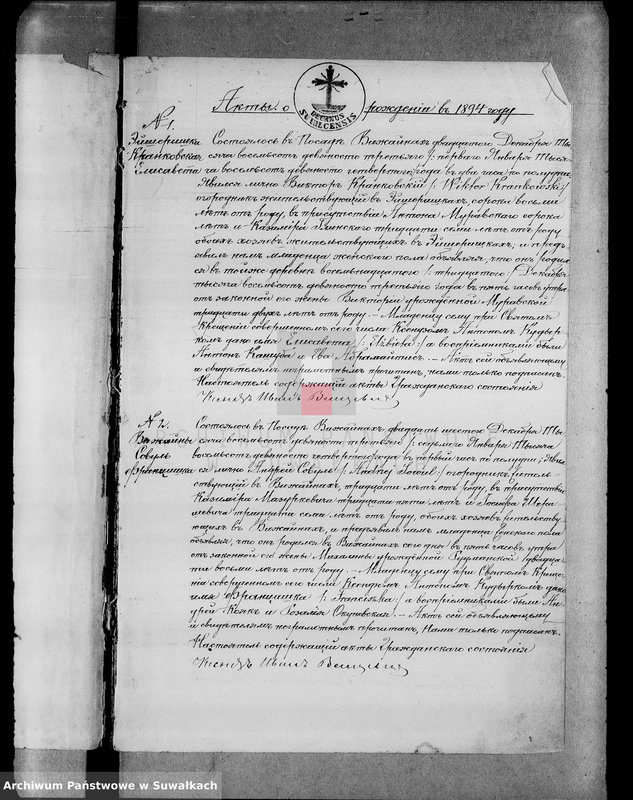 Акты о рожденіи въ 1894 году
DECANUS SUVALCENSIS
N 1.
Эйшеришки
Кранковская
Елисавета
Состоялось въ Посадѣ Вижайнахъ двадцатаго Декабря Ты-
сяча восемьсотъ девяносто третьяго /: перваго Января Тыся-
ча восемьсотъ девяносто четвертаго года въ два часа по полудни.
Явился лично Викторъ Кранковскій /: Wiktor Krankowski :/
огородникъ жительствующій въ Эйшеришкахъ, сорока восьми
лѣтъ отъ роду, въ присутствіи Антона Муравскаго сорока
лѣтъ и Казиміра тридцати семи лѣтъ отъ роду
обоихъ хозяевъ жительствующихъ въ Эйшеришкахъ, и предъ-
явилъ намъ младенца женскаго пола объявляя, что онъ родил-
ся въ той же деревнѣ восемнадцатаго /: тридцатаго :/ Декабря
тысяча восемьсотъ девяносто третьяго года въ пять часовъ утра
отъ законной его жены Викторіи урожденной Муравской
тридцати двухъ лѣтъ отъ роду. — Младенцу сему при Святомъ
Крещеніи совершенномъ сего числа Ксендзомъ Антономъ Кудыр-
комъ дано имя Елисавета /: Elżbieta :/ а воспріемниками были
Антонъ и Ева Абрамайтисъ. — Актъ сей объявляющему
и свидѣтелямъ неграмотнымъ прочитанъ, нами только подписанъ.
Настоятель содержащій акты Гражданскаго состоянія
Ксендзъ
N 2.
Вижайны
Совуль
Францишка
Состоялось въ Посадѣ Вижайнахъ двадцать шестого Декабря Ты-
сяча восемьсотъ девяносто третьяго /: седьмого Января Тысяча
восемьсотъ девяносто четвертаго года въ первый часъ по полудни; Явил-
ся лично Андрей Совуль /: Andrzej :/ огородникъ житель-
ствующій въ Вижайнахъ, тридцати лѣтъ отъ роду, въ присутствіи
Казиміра Мазуркевича тридцати пяти лѣтъ и Іосифа
тридцати семи лѣтъ отъ роду, обоихъ хозяевъ жительству-
ющихъ въ Вижайнахъ, и предъявилъ намъ младенца женскаго пола
объявляя, что онъ родился въ Вижайнахъ сего дня въ пять часовъ утра
отъ законной его жены Михалины урождённой двадца-
ти восьми лѣтъ отъ роду. — Младенцу сему при Святомъ Креще-
ніи совершенномъ сего числа Ксендзомъ Антономъ Кудыркомъ дано
имя Францишка /: Franciszka :/ а воспріемниками были Ан-
дрей и Розалія Окуневская. — Актъ сей объявляющему
и свидѣтелямъ неграмотнымъ прочитанъ, Нами только подписанъ.
Настоятель содержащій акты Гражданскаго состоянія
Ксендзъ
Archiwum Państwowe w Suwałkach